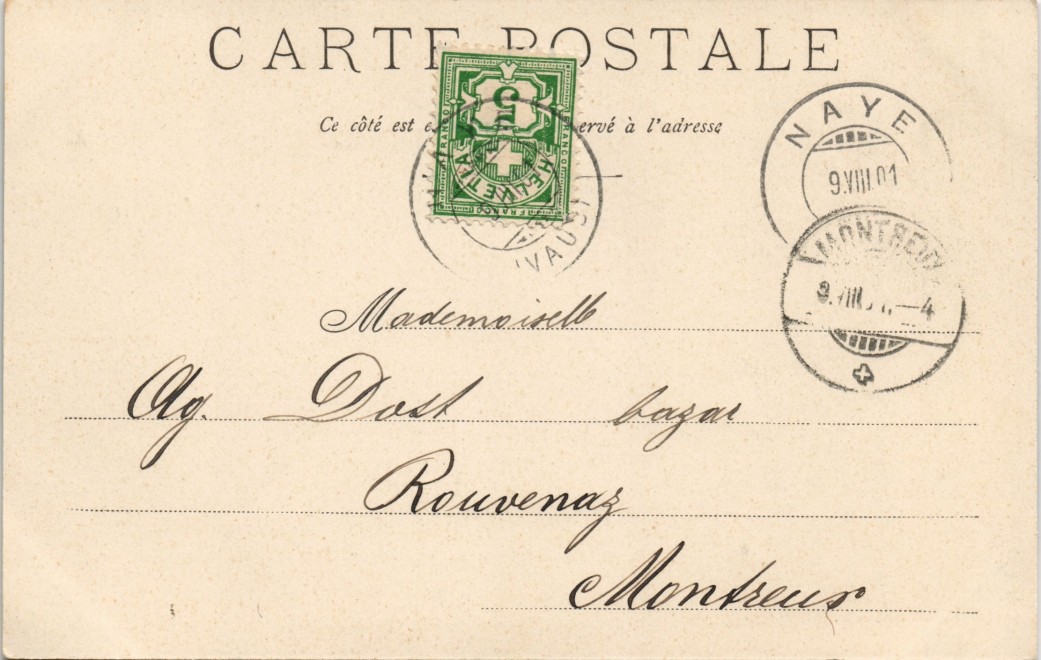 CARTE POSTALE
Ce côté est ervé à l'adresse
5
FRANCO
FRANCO
FRANCO
HELVETIA
(VAUD)
NAYE
9.VIII.01
MONTREUX
9.VIII.01.-4
Mademoiselle
Ag. Dost bazar
Rouvenaz
Montreux